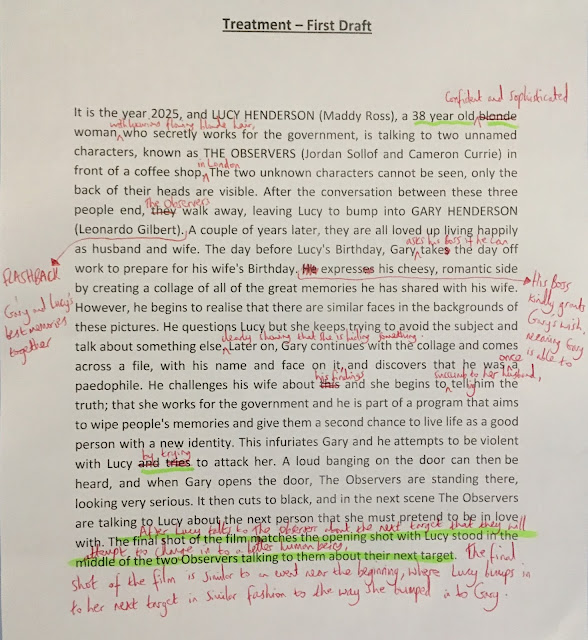 Treatment – First Draft
Confident and sophisticated
It is the year 2025, and LUCY HENDERSON (Maddy Ross), a 38 year old blonde
with luxurious flowing blonde hair,
woman who secretly works for the government, is talking to two unnamed
characters, known as THE OBSERVERS (Jordan Sollof and Cameron Currie) in
in London
front of a coffee shop. The two unknown characters cannot be seen, only the
back of their heads are visible. After the conversation between these three
The Observers
people end, they walk away, leaving Lucy to bump into GARY HENDERSON
(Leonardo Gilbert). A couple of years later, they are all loved up living happily
asks his boss if he can
as husband and wife. The day before Lucy's Birthday, Gary takes the day off
FLASHBACK
work to prepare for his wife's Birthday. He expresses his cheesy, romantic side
His Boss
kindly grants
Gary's wish,
meaning Gary
is able to
by creating a collage of all of the great memories he has shared with his wife.
Gary and Lucy's
best memories
together
However, he begins to realise that there are similar faces in the backgrounds of
these pictures. He questions Lucy but she keeps trying to avoid the subject and
clearly showing that she is hiding something.
talk about something else. Later on, Gary continues with the collage and comes
once
across a file, with his name and face on it, and discovers that he was a
his findings
succumb to her husband,
paedophile. He challenges his wife about this and she begins to tell him the
truth; that she works for the government and he is part of a program that aims
to wipe people's memories and give them a second chance to live life as a good
person with a new identity. This infuriates Gary and he attempts to be violent
by trying
with Lucy and tries to attack her. A loud banging on the door can then be
heard, and when Gary opens the door, The Observers are standing there,
looking very serious. It then cuts to black, and in the next scene The Observers
are talking to Lucy about the next person that she must pretend to be in love
After Lucy talks to the observers about the next target that they will
with. The final shot of the film matches the opening shot with Lucy stood in the
attempt to change in to a better human being,
middle of the two Observers talking to them about their next target. The final
shot of the film is similar to a used near the beginning, where Lucy bumps in
to her next target in similar fashion to the way she bumped in to Gary.